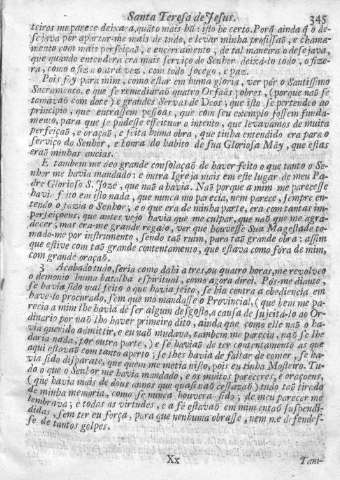 Santa Teresa de Jesus. 345
teiros me parece deixára, quãto mais hũ: isto he certo. Porq̃ ainda q̃ o de-
sejava por apartar-me mais de tudo, e levar minha profissaõ, e chama-
mento com mais perfeiçaõ, e encerramento, de tal maneira o desejava,
que quando entendera era mais serviço do Senhor deixá-lo todo, o fize-
ra, como o fiz o outra vez, com todo socego, e paz.
Pois foy para mim, como estar em huma gloria, ver pôr o Santissimo
Sacramento, e que se remediaraõ quatro Orfaãs pobres, (porque naõ se
tomavaõ com dote) e grandes Servas de Deos, que isto se pertendeo ao
principio, que entrassem pessoas, que com seu exemplo fossem funda-
mento, para que se pudesse effeituar o intento, que levavamos de muita
perfeiçaõ, e oraçaõ, e feita huma obra, que tinha entendido era para o
serviço do Senhor, e honra do habito de sua Gloriosa Mãy, que estas
eraõ minhas ancias.
E tambem me seo grande consolaçaõ de haver feito o que tanto o Se-
nhor me havia mandado: e outra Igreja mais em este lugar de meu Pa-
dre Glorioso S. Jozé, que naõ a havia. Naõ porque a mim me parecesse
havia feito em isso nada, que nunca mo parecia, nem parece, sempre en-
tendo o fazia o Senhor, e o que era de minha parte, era com tantas im-
perfeiçoens, que antes vejo havia que me culpar, que naõ que me agra-
decer, mas era-me grande regalo, ver que houvesse Sua Magestade to-
mado-me por instrumento, sendo taõ ruim, para taõ grande obra: assim
que estive com taõ grande contentamento, que estava como fóra de mim,
com grande oraçaõ.
3 Acabado tudo, seria como dahi a tres, ou quatro horas, me revolveo
o demonio huma batalha espiritual, como agora direi. Pôs-me diante,
se havia sido mal feito o que havia feito, se hia contra a obediencia em
havê-lo procurado, sem que mo mandasse o Provincial, (que bem me pa-
recia a mim lhe havia de ser algum desgosto, a causa de sujeitá-lo ao Or-
dinario por naõ lho haver primeiro dito, ainda que como elle naõ o ha-
via querido admittir, e eu naõ mudava, tambem me parecia, naõ se lhe
daria nada, por outra parte,) e se haviaõ de ter contentamento as que
aqui estavaõ com tanto aperto; se lhes havia de faltar de comer, se ha-
via sido disparate, que quem me metia nisso, pois eu tinha Mosteiro. Tu-
do o que o Senhor me havia mandado, e os muitos pareceres, e oraçoens,
(que havia mais de dous annos que quasi naõ cessavaõ) tudo taõ tirado
de minha memoria, como se nunca houvera sido; de meu parecer me
lembrava; e todas as virtudes, e a Fé estavaõ em mim entaõ suspendi-
didas, sem ter eu força, para que nenhuma obrasse, nem me defendes-
se de tantos golpes.
Xx
Tam-